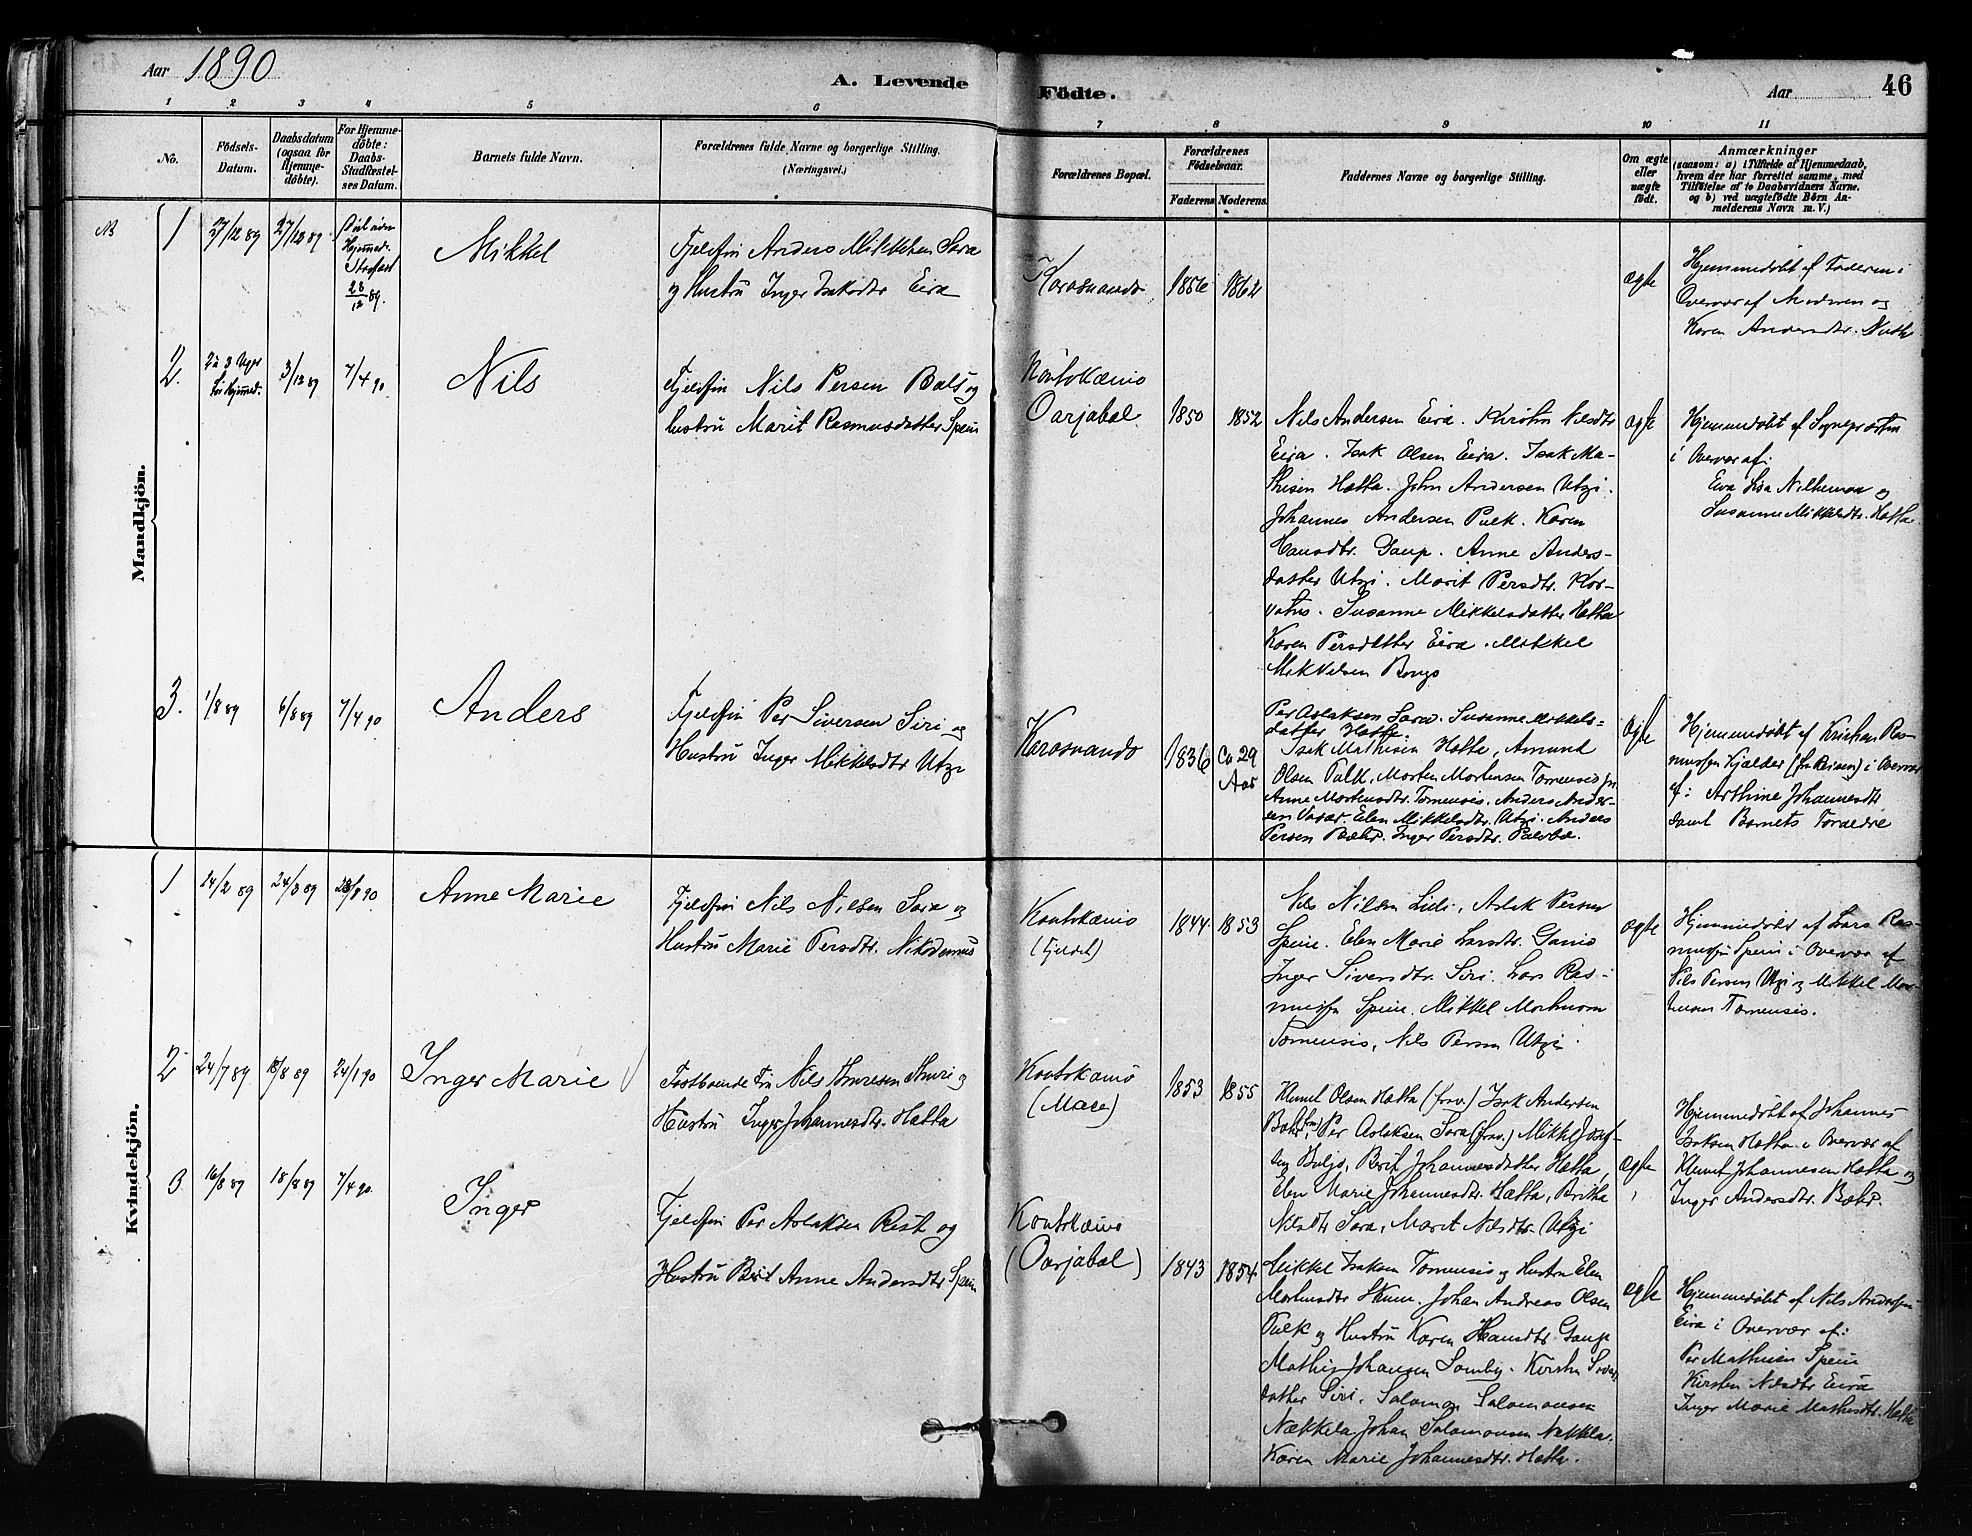 Aar 1890
A. Levende
Födte.
Aar
46
1 2 3 4 5 6 7 8 9 10 11
No.
Födsels-
Datum.
Daabsdatum
(ogsaa for
Hjemme-
døbte).
For Hjemme-
døbte:
Daabs-
Stadfæstel-
ses Datum.
Barnets fulde Navn.
Forældrenes fulde Navne og borgerlige Stilling.
(Næringsvei.)
Forældrenes Bopæl.
Forældrenes
Födselsaar.
Faderens. Moderens.
Faddernes Navne og borgerlige Stilling.
Om ægte
eller
uægte
födt.
Anmærkninger
(saasom: a) i Tilfælde af Hjemmedaab,
hvem der har forrettet samme, med
Tilföielse af to Daabsvidners Navne,
og b) ved uægtefödte Börn An-
melderens Navn m. V.)
Mandkjön.
1
27/12 89
27/12 89
28/12 89.
Mikkel
Fjeldfin Anders Mikkelsen Sara
og Hustru Inger Isaksdtr Eira
Karasuando
1856
1862
ægte
Hjemmedøbt af Faderen i
Overvær af Moderen og
Karen Andersdtr.
2.
2 a 3 Uger
3/12 89
7/4 90
Nils
Fjeldfin Nils Persen Bals og
hustru Marit Rasmusdatter Spein
Koutokæino
Oarjabal
1850
1852
Nils Andersen Eira. Kirsten Nilsdtr
Eira. Isak Olsen Eira. Isak Ma-
thisen Hætta. John Andersen Utzi.
Johannes Andersen Pulk. Karen
Hansdtr. Gaup. Anne Anders-
datter Utzi. Marit Persdtr. Kor-
vatus. Susanne Mikkelsdatter Hætta
Karen Persdatter Eira. Mikkel
Mikkelsen Bongo
ægte
Hjemmedøbt af Sognepræsten
i Overvær af:
Eva Lisa og
Susanne Mikkelsdtr. Hætta.
3.
1/8 89
6/8 89
7/4 90
Anders
Fjeldfin Per Siversen Siri og
Hustru Inger Mikkelsdtr Utzi
Karasuando
1836
Ca 29
Aar
Per Aslaksen Sara. Susanne Mikkels-
datter Hætta.
Isak Mathisen Hætta, Amund
Olsen Pulk, Morten Mortensen Tornensis
Anne Mortensdtr. Tornensis. Anders Ander-
sen Vasar. Elen Mikkelsdtr. Utzi. Anders
Persen Bæhr. Inger Persdtr. Palobal.
ægte
Hjemmedøbt af Kristian Ras-
mussen Kjelder (fra Reisen) i Overvær
af: Arthine Johannesdtr
samt Barnets Forældre
Kvindekjön.
1
24/2 89
24/3 89
Anne Marie
Fjeldfin Nils Nilsen Sara og
Hustru Marie Persdtr. Nikodemus
Koutokæino
(Fjeldet)
1844
1853
Nils Nilsen Siri, Aslak Persen
Spein. Elen Marie Larsdtr. Gaino
Inger Siversdtr. Siri. Lars Ras-
mussen Spein. Mikkel Mortensen
Tornensis, Nils Persen Utzi.
ægte
Hjemmedøbt af Lars Ras-
mussen Spein i Overvær af
Nils Persen Utzi og Mikkel Mor-
tensen Tornensis.
2
24/7 89
18/8 89
24/1 90
Inger Marie
Fastboende Fin Nils Thuresen Thuri og
Hustru Inger Johannesdtr. Hætta
Koutokæino
(Maze)
1853
1855
Klemet Olsen Hætta (frav.) Isak Andersen
Bæhr, Per Aslaksen Sara (frav.) Mikkel Josef-
sen Buljo, Berit Johannesdatter Hætta,
Elen Marie Johannesdtr. Hætta, Britha
Nilsdtr Sara, Marit Nilsdtr. Utzi
ægte
Hjemmedøbt af Johannes
Isaksen Hætta i Overvær af
Klemet Johannesen Hætta og
Inger Andersdtr. Bæhr.
3
16/8 89
18/8 89
7/4 90.
Inger
Fjeldfin Per Aslaksen Rist og
Hustru Berit Anne Andersdtr. Spein
Koutokæino
(Oarjabal)
1843
1854
Mikkel Isaksen Tornensis og Hustru Elen
Mortensdtr Skum. Johan Andreas Olsen
Pulk og Hustru Karen Hansdtr. Gaup
Mathis Johansen Somby. Kirsten
datter Siri. Salomon Salomonsen
Nækkela Johan Salomonsen Nækkla.
Karen Marie Johannesdtr. Hætta.
ægte
Hjemmedøbt af Nils Andersen
Eira i Overvær af:
Per Mathisen Spein
Kirsten Nilsdtr Eira
Inger Marie Mathisdtr. Hætta